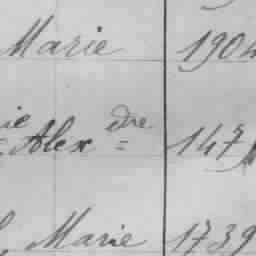 Marie 1904
ie Alex dre = 147
Marie 1739